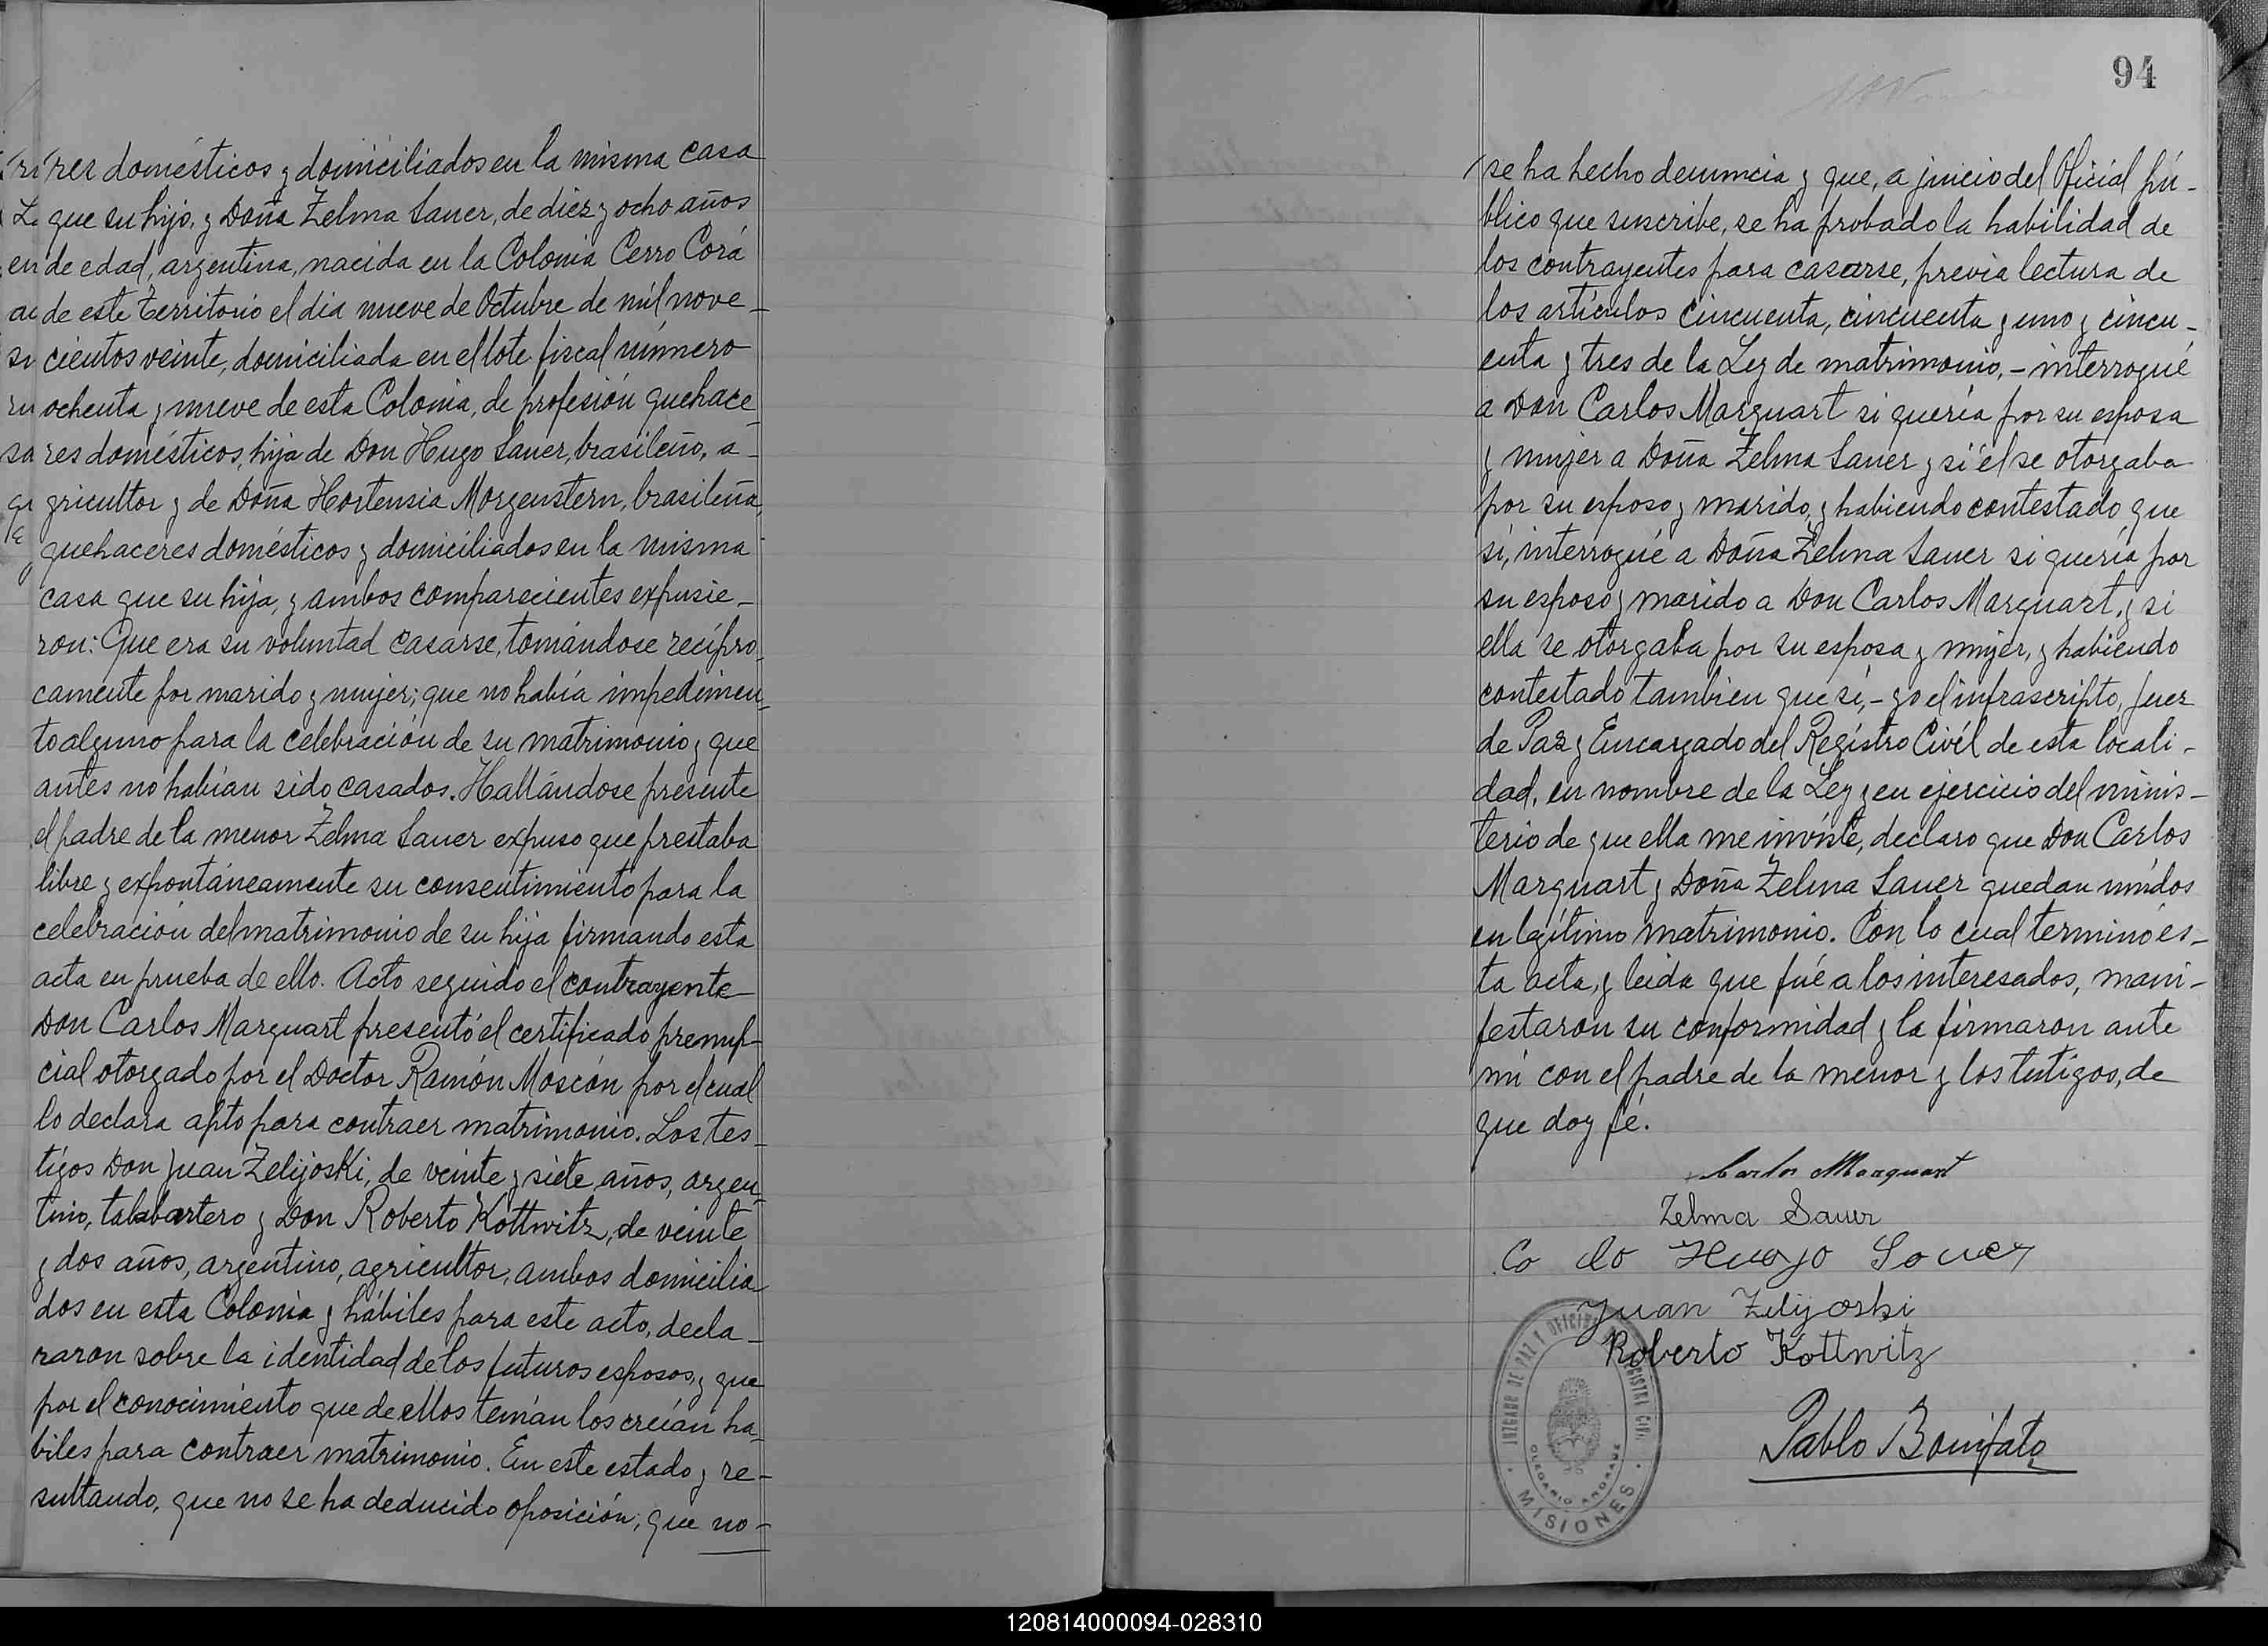 res domésticos y domiciliados en la misma casa
que su hijo, y Doña Zelma Sauer, de diez y ocho años
de edad, argentina, nacida en la Colonia Cerro Corá
de este Territorio el dia nueve de Octubre de mil nove-
cientos veinte, domiciliada en el lote fiscal número
ochenta y nueve de esta Colonia, de profesión quehace-
res domésticos, hija de Don Hugo Sauer, brasileño, a-
gricultor y de Doña Hortensia Morgenstern, brasileña,
quehaceres domésticos y domiciliados en la misma
casa que su hija, y ambos comparecientes expusie-
ron: Que era su voluntad casarse, tomándose recípro-
camente por marido y mujer; que no había impedimen-
to alguno para la celebración de su matrimonio y que
antes no habían sido casados. Hallándose presente
el padre de la menor Zelma Sauer expuso que prestaba
libre y expontáneamente su consentimiento para la
celebración del matrimonio de su hija firmando esta
acta en prueba de ello. Acto seguido el contrayente
Don Carlos Marquart presentó el certificado prenup-
cial otorgado por el Doctor Ramón Moscón por el cual
lo declara apto para contraer matrimonio. Los tes-
tigos Don Juan Zelijoski, de veinte y siete años, argen-
tino, talabartero y Don Roberto Kottwitz, de veinte
y dos años, argentino, agricultor, ambos domicilia
dos en esta Colonia y hábiles para este acto, decla-
raron sobre la identidad de los futuros esposos, y que
por el conocimiento que de ellos tenían los creían ha-
biles para contraer matrimonio. En este estado y re-
sultando, que no se ha deducido oposición; que no-
94
se ha hecho denuncia y que, a juicio del Oficial pú-
blico que suscribe, se ha probado la habilidad de
los contrayentes para casarse, previa lectura de
los artículos cincuenta, cincuenta y uno y cincu-
enta y tres de la Ley de matrimonio, - interrogué
a Don Carlos Marquart si quería por su esposa
y mujer a Doña Zelma Sauer y si él se otorgaba
por su esposo y marido, y habiendo contestado que
si, interrogué a Doña Zelma Sauer si quería por
su esposo y marido a Don Carlos Marquart, y si
ella se otorgaba por su esposa y mujer, y habiendo
contestado tambien que si, - yo el infrascripto, Juez
de Paz y Encargado del Registro Civil de esta locali-
dad, en nombre de la Ley y en ejercicio del minis-
terio de que ella me inviste, declaro que Don Carlos
Marquart y Doña Zelma Sauer quedan unidos
en legítimo matrimonio. Con lo cual terminó és-
ta acta, y leida que fué a los interesados, mani-
festaron su conformidad y la firmaron ante
mi con el padre de la menor y los testigos, de
que doy fé.
Carlos Marquart
Zelma Sauer
Hugo Sauer
Juan Zelijoski
Roberto Kottwitz
JUZGADO DE PAZ Y OFICINA REGISTRO CIVIL
OLEGARIO ANDRADE
MISIONES
Pablo Bonifato
120814000094-028310